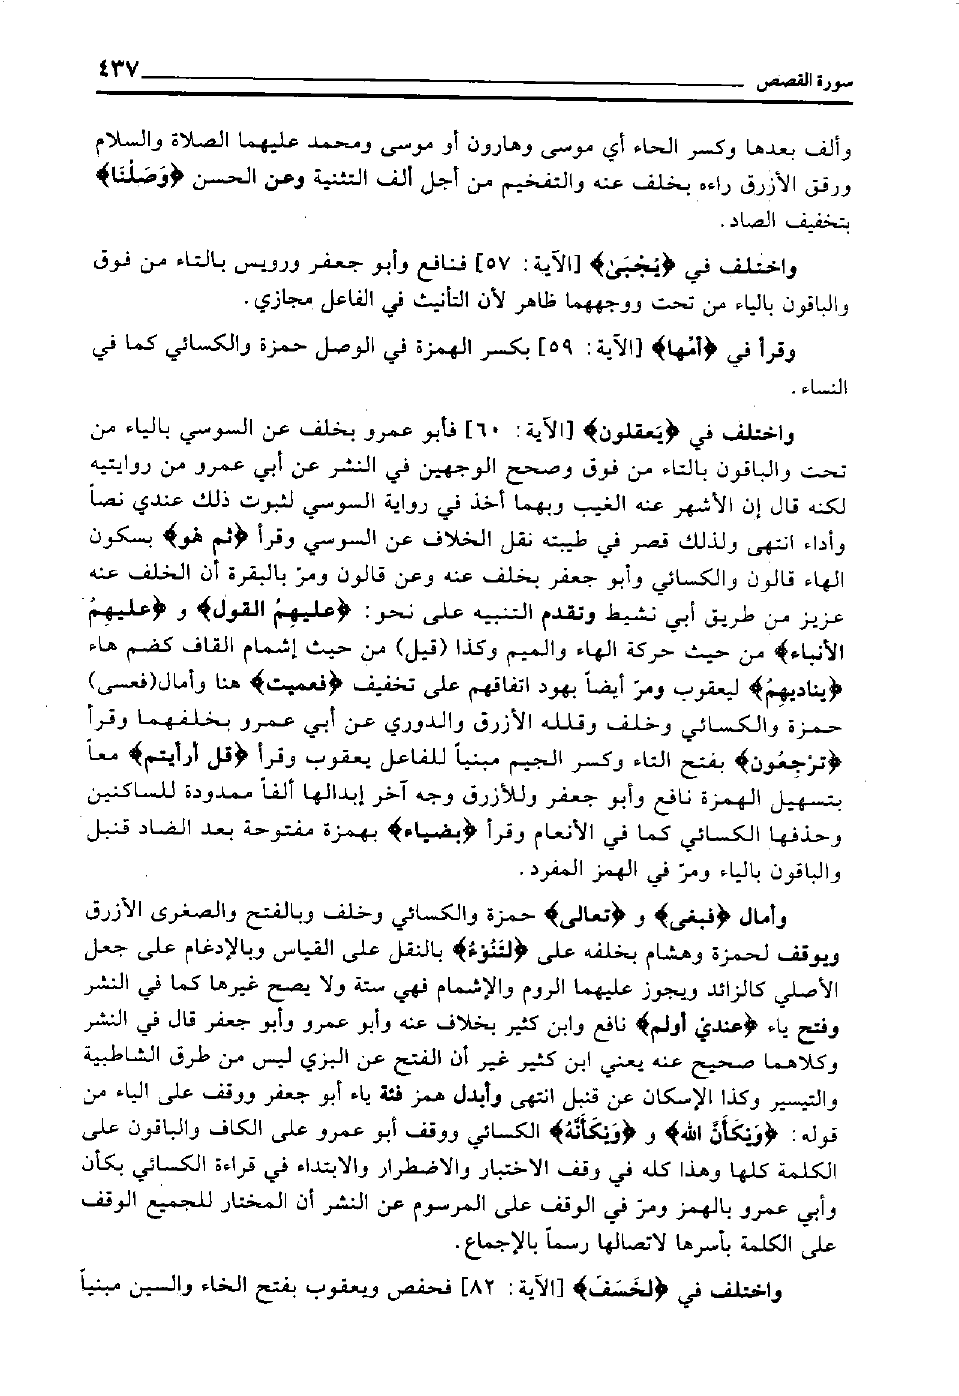 سورة القصص ٤٣٧
وألف بعدها وكسر الحاء أي موسى وهارون أو موسى ومحمد عليهما الصلاة والسلام
ورقق الأزرق راءه بخلف عنه والتفخيم من أجل ألف التثنية وعن الحسن ﴿وَصَلْنَا﴾
بتخفيف الصاد.
واختلف في ﴿يُجْبَىٰ﴾ [الآية: ٥٧] فنافع وأبو جعفر ورويس بالتاء من فوق
والباقون بالياء من تحت ووجههما ظاهر لأن التأنيث في الفاعل مجازي.
وقرأ في ﴿أمّها﴾ [الآية: ٥٩] بكسر الهمزة في الوصل حمزة والكسائي كما في
النساء.
واختلف في ﴿يَعقلون﴾ [الآية: ٦٠] فأبو عمرو بخلف عن السوسي بالياء من
تحت والباقون بالتاء من فوق وصحح الوجهين في النشر عن أبي عمرو من روايتيه
لكنه قال إن الأشهر عنه الغيب وبهما أخذ في رواية السوسي لثبوت ذلك عندي نصاً
وأداء انتهى ولذلك قصر في طيبته نقل الخلاف عن السوسي وقرأ ﴿ثم هو﴾ بسكون
الهاء قالون والكسائي وأبو جعفر بخلف عنه وعن قالون ومرّ بالبقرة أن الخلف عنه
عزيز من طريق أبي نشيط وتقدم التنبيه على نحو: ﴿عليهمُ القول﴾ و ﴿عليهمُ
الأنباء﴾ من حيث حركة الهاء والميم وكذا (قيل) من حيث إشمام القاف كضم هاء
﴿يناديهمُ﴾ ليعقوب ومرّ أيضاً بهود اتفاقهم على تخفيف ﴿فعميت﴾ هنا وأمال(فعسى)
حمزة والكسائي وخلف وقلله الأزرق والدوري عن أبي عمرو بخلفهما وقرأ
﴿تَرْجعُون﴾ بفتح التاء وكسر الجيم مبنياً للفاعل يعقوب وقرأ ﴿قل أرأيتم﴾ معاً
بتسهيل الهمزة نافع وأبو جعفر وللأزرق وجه آخر إبدالها ألفاً ممدودة للساكنين
وحذفها الكسائي كما في الأنعام وقرأ ﴿بضياء﴾ بهمزة مفتوحة بعد الضاد قنبل
والباقون بالياء ومرّ في الهمز المفرد.
وأمال ﴿فبغى﴾ و ﴿تعالى﴾ حمزة والكسائي وخلف وبالفتح والصغرى الأزرق
ويوقف لحمزة وهشام بخلفه على ﴿لتَنُوْءُ﴾ بالنقل على القياس وبالإدغام على جعل
الأصلي كالزائد ويجوز عليهما الروم والإشمام فهي ستة ولا يصح غيرها كما في النشر
وفتح ياء ﴿عندي أولم﴾ نافع وابن كثير بخلاف عنه وأبو عمرو وأبو جعفر قال في النشر
وكلاهما صحيح عنه يعني ابن كثير غير أن الفتح عن البزي ليس من طرق الشاطبية
والتيسير وكذا الإسكان عن قنبل انتهى وأبدل همز فئة ياء أبو جعفر ووقف على الياء من
قوله: ﴿وَيْكَأَنَّ الله﴾ و ﴿وَيْكَأَنَّهُ﴾ الكسائي ووقف أبو عمرو على الكاف والباقون على
الكلمة كلها وهذا كله في وقف الاختبار والاضطرار والابتداء في قراءة الكسائي بكأن
وأبي عمرو بالهمز ومرّ في الوقف على المرسوم عن النشر أن المختار للجميع الوقف
على الكلمة بأسرها لاتصالها رسماً بالإجماع.
واختلف في ﴿لخَسَفَ﴾ [الآية: ٨٢] فحفص ويعقوب بفتح الخاء والسين مبنياً